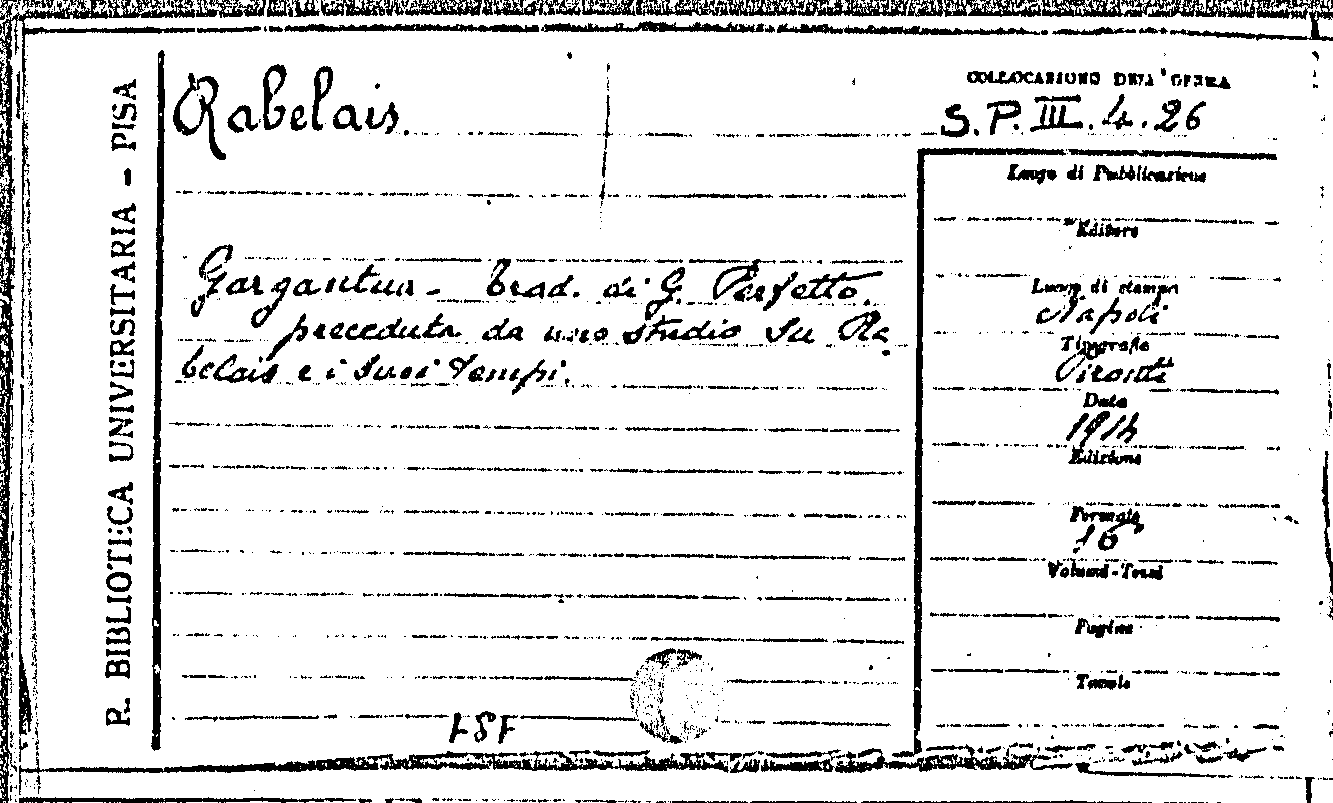 R. BIBLIOTECA UNIVERSITARIA - PISA
Rabelais
COLLOCAZIONE DELL'OPERA
S.P. III. 4. 26
Gargantua - trad. di G. Perfetto.
preceduta da uno studio su Ra
belais e i suoi tempi.
Luogo di Pubblicazione
Editore
Luogo di stampa
Napoli
Tipografia
Pironti
Data
1914
Edizione
Formato
16°
Volumi-Tomi
Pagine
Tavole